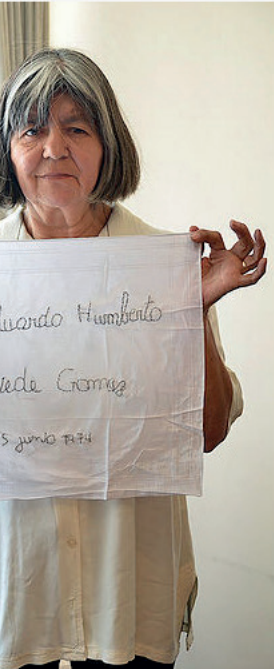 uardo Humberto
uede Gomez
5 junio 1974